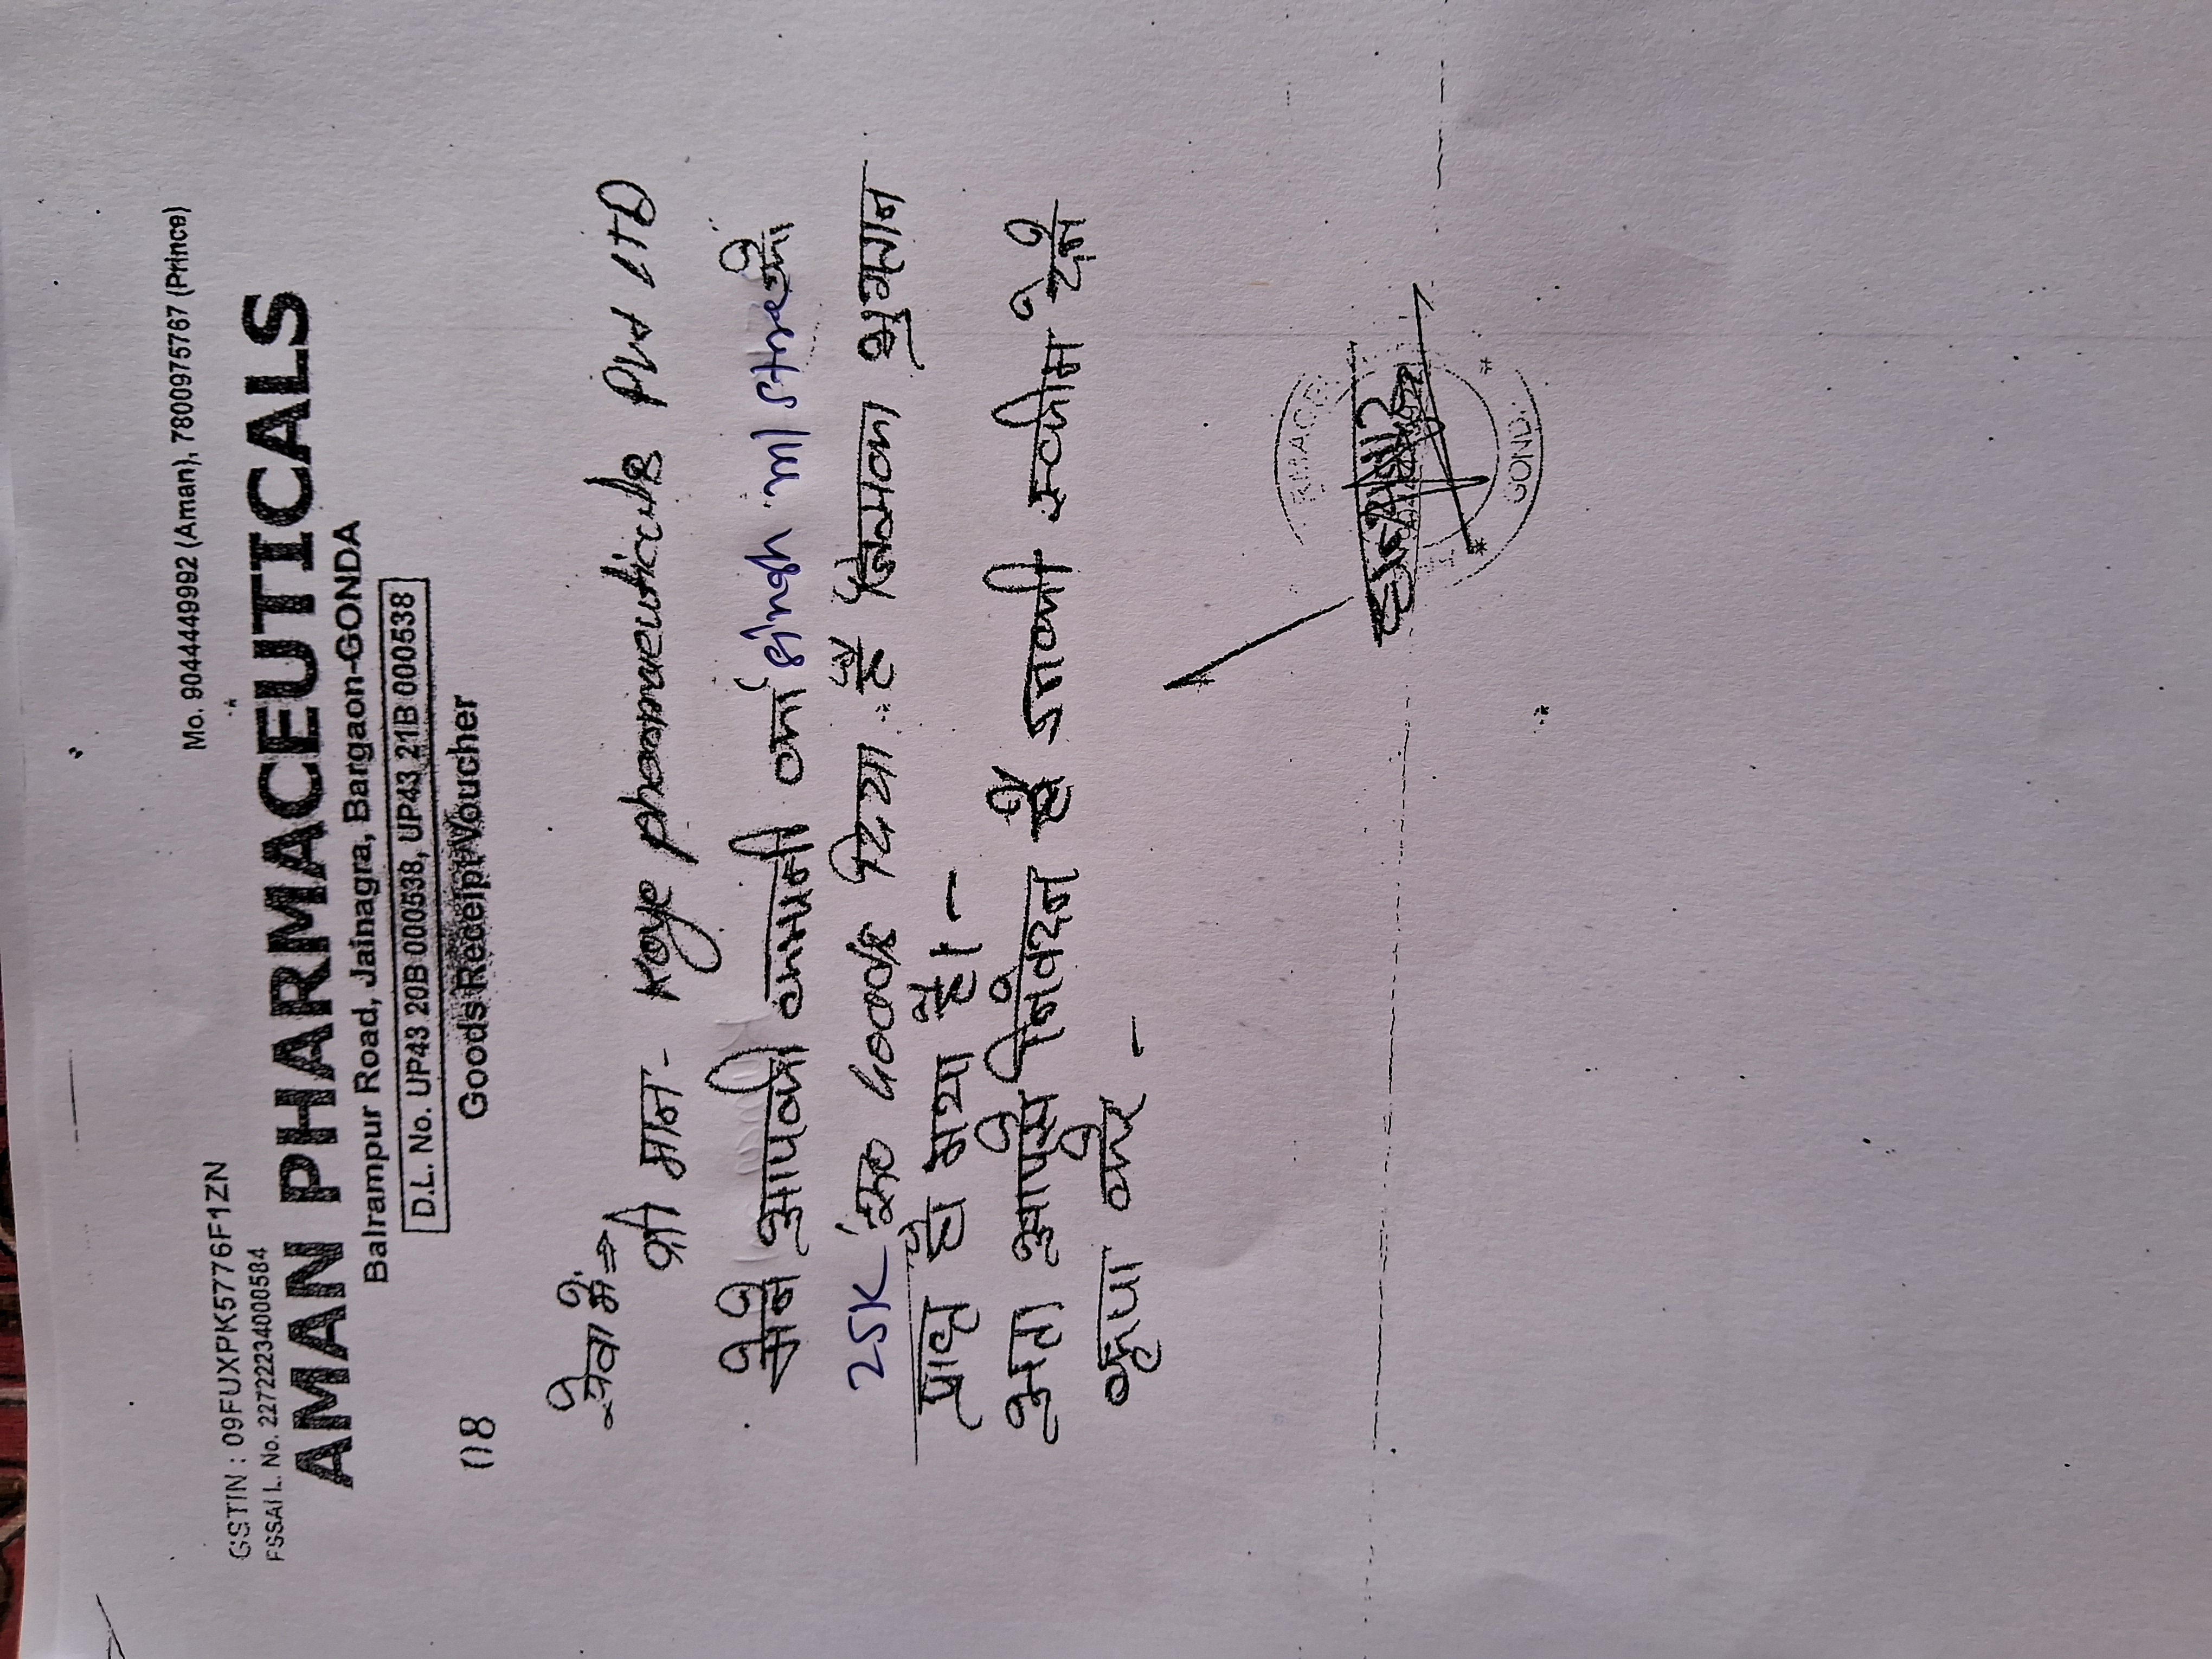 GSTIN : 09FUXPK5776F1ZN
Mo. 9044449992 (Aman), 7800975767 (Prince)
FSSAI L. No. 22722234000584
AMAN PHARMACEUTICALS
Balrampur Road, Jainagra, Bargaon-GONDA
D.L. No. UP43 20B 000538, UP43 21B 000538
Goods Receipt Voucher
सेवा में ⇒
श्री मान - Koye pharmaceuticals Pvt LTD
मैने आपकी कम्पनी का singh ml store को
25K का Goods दिया है जिसका भुगतान
प्राप्त हो गया है। -
अता आपसे निवेदन है इनकी स्कीम देने
कृपा करे -
GONDA